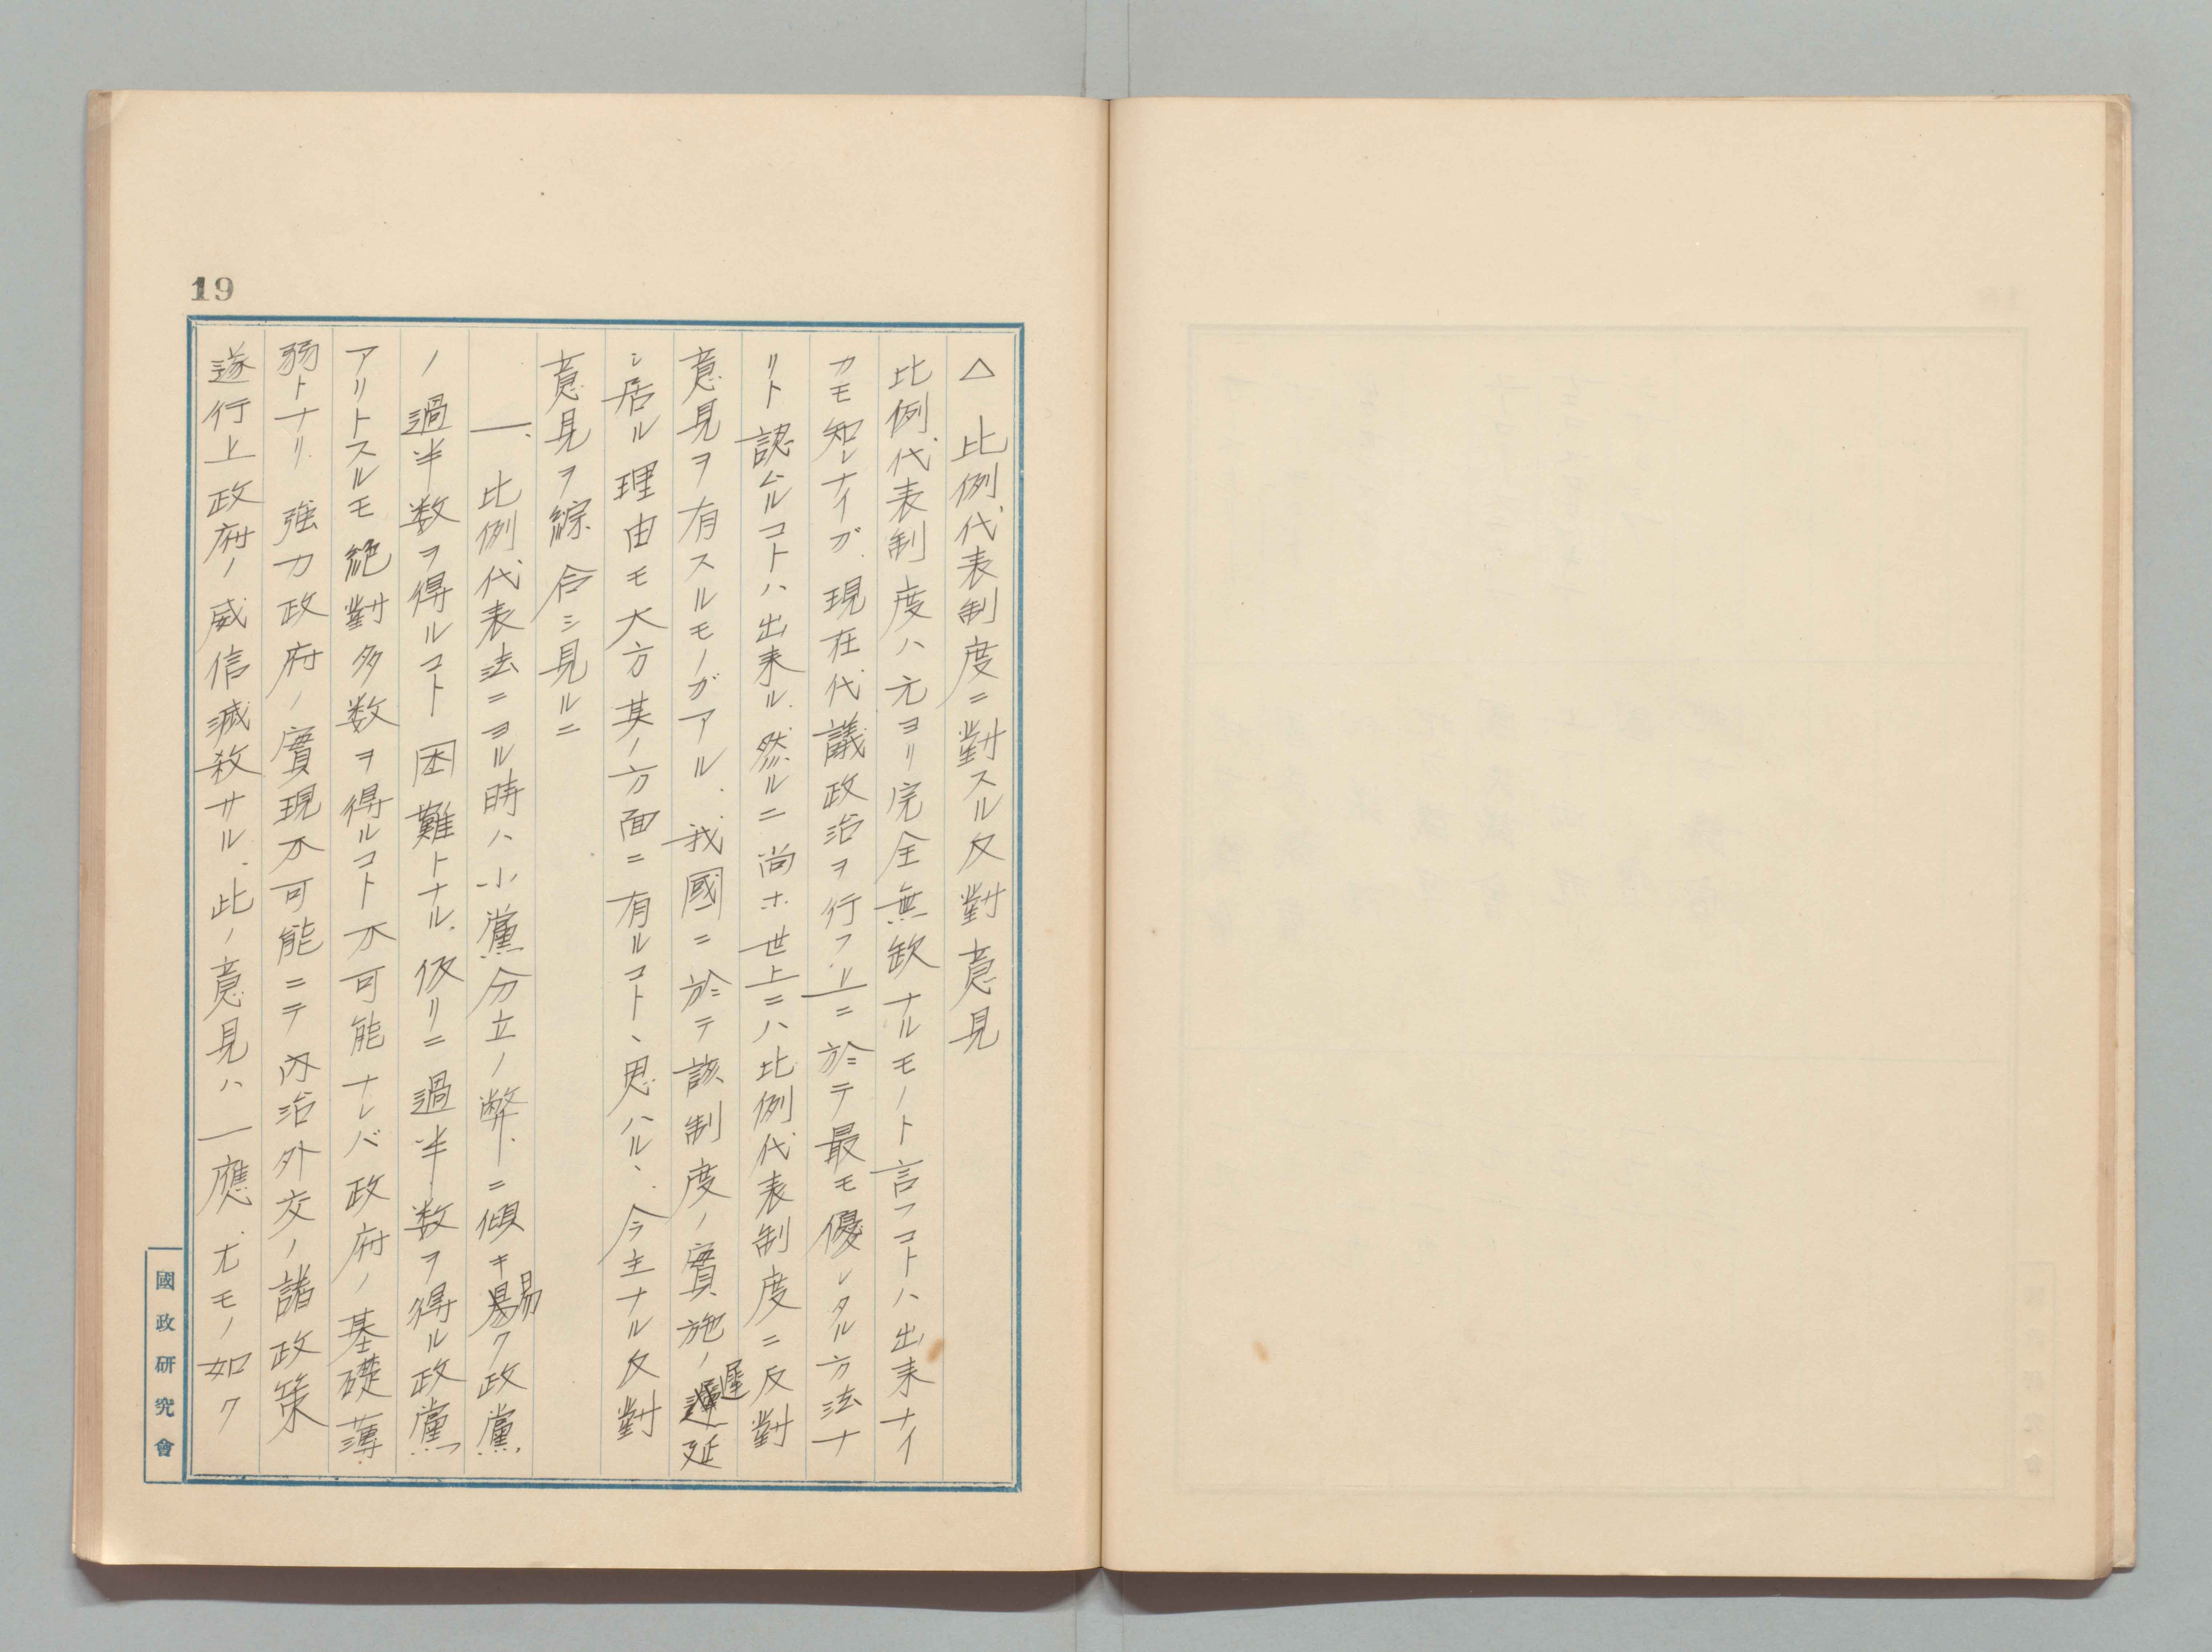 19
△ 比例代表制度ニ對スル反對意見
比例代表制度ハ元ヨリ完全無欽ナルモノト言フコトハ出来ナイ
カモ知レナイガ、現在代議政治ヲ行フ上ニ於テ最モ優レタル方法ナ
リト認ムルコトハ出来ル、然ルニ尚ホ世上ニハ比例代表制度ニ反對
意見ヲ有スルモノガアル、我國ニ於テ該制度ノ實施ノ遲延
シ居ル理由モ大方其ノ方面ニ有ルコト、思ハル、、今主ナル反對
意見ヲ綜合シ見ルニ
一、比例代表法ニヨル時ハ小黨分立ノ弊ニ傾キ易ク政黨
ノ過半数ヲ得ルコト困難トナル、仮リニ過半数ヲ得ル政黨
アリトスルモ絶對多数ヲ得ルコト不可能ナレバ政府ノ基礎薄
弱トナリ、強力政府ノ實現不可能ニテ內治外交ノ諸政策
遂行上政府ノ威信滅殺サル、此ノ意見ハ一應、尤モノ如ク
國政研究會